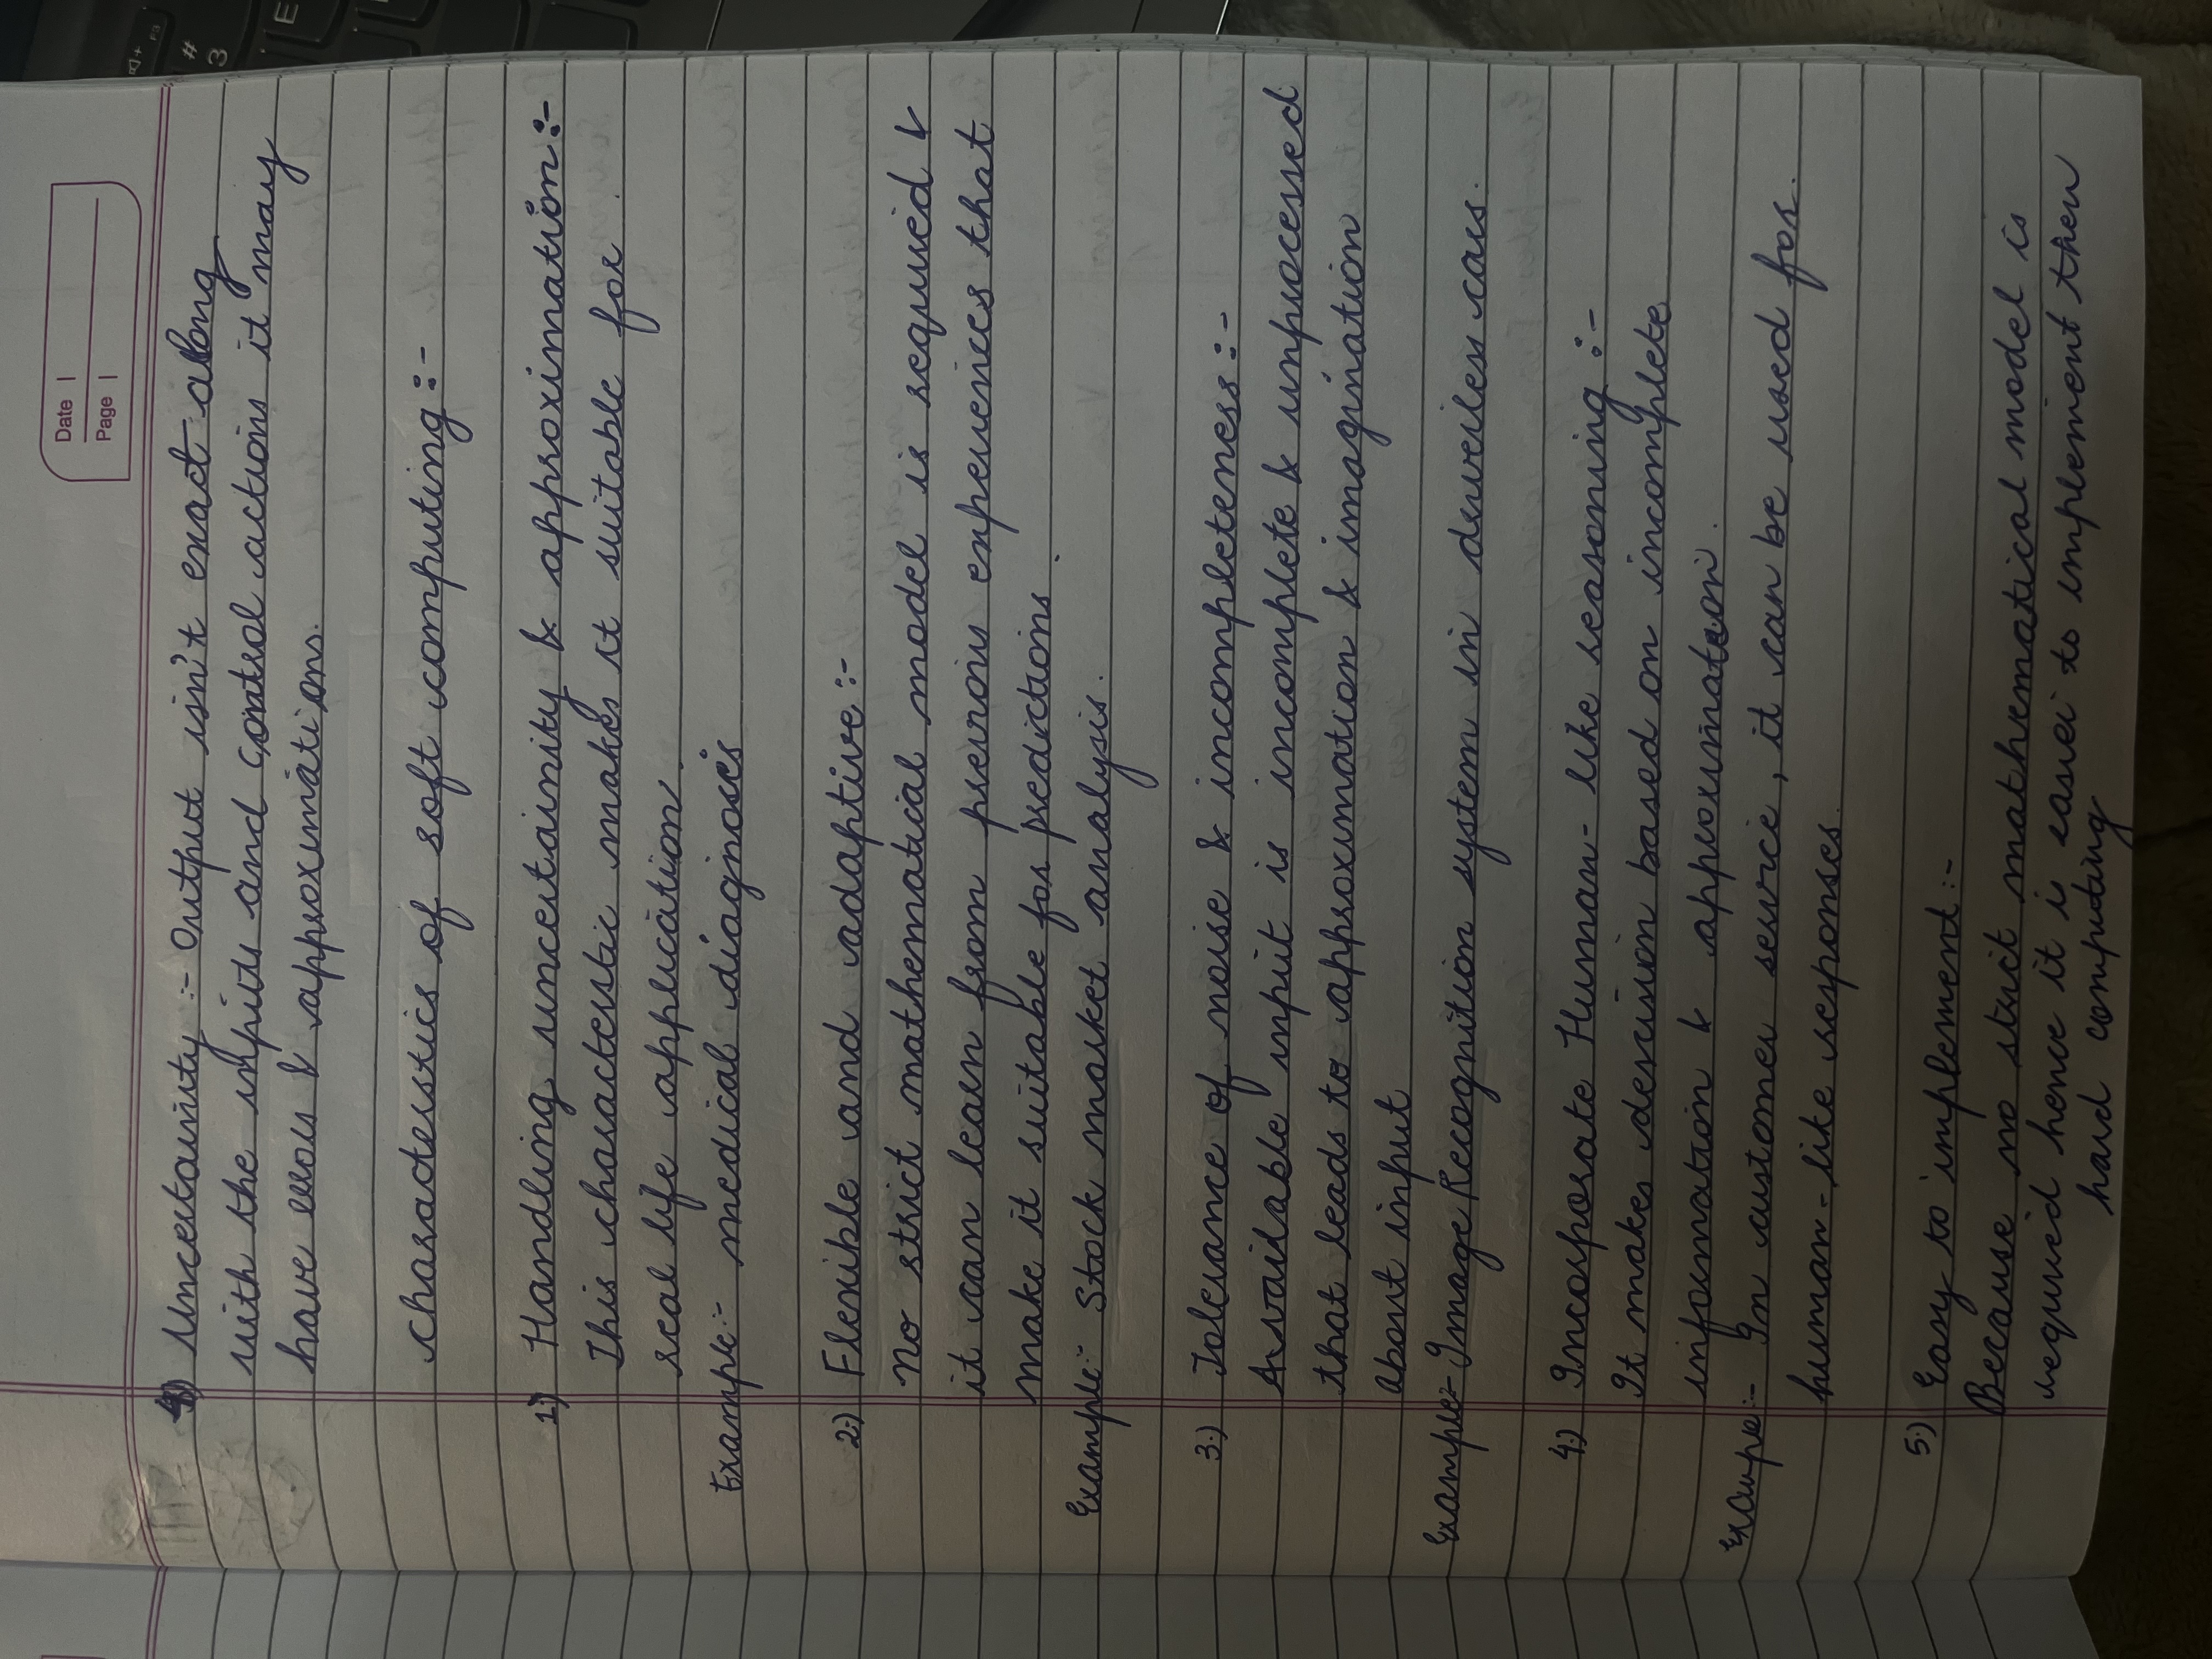 Date |
Page |
4) Uncertainity :- Output isn't exact along
with the inputs and control actions it may
have errors & approximations.
characterstics of soft computing :-
1.) Handling uncertainity & approximation :-
This characterstic makes it suitable for
real life application.
Example :- medical diagnosis
2.) Flexible and adaptive :-
No strict mathematical model is required &
it can learn from previous experiences that
make it suitable for predictions.
Example :- Stock market analysis.
3.) Tolerance of noise & incompleteness :-
Available input is incomplete & unprocessed
that leads to approximation & imagination
about input
Example :- Image Recognition system in driverless cars.
4.) Incorporate Human-like reasoning :-
It makes descision based on incomplete
information & approximation.
Example :- In customer service, it can be used for
human-like responses.
5.) Easy to implement :-
Because no strict mathematical model is
required hence it is easier to implement then
hard computing
F3
#
3
E